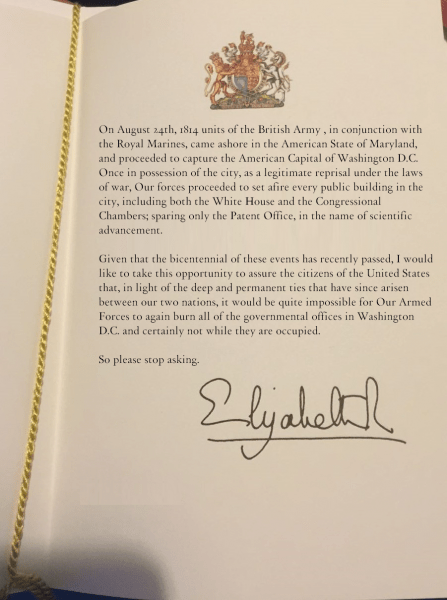 On August 24th, 1814 units of the British Army , in conjunction with
the Royal Marines, came ashore in the American State of Maryland,
and proceeded to capture the American Capital of Washington D.C.
Once in possession of the city, as a legitimate reprisal under the laws
of war, Our forces proceeded to set afire every public building in the
city, including both the White House and the Congressional
Chambers; sparing only the Patent Office, in the name of scientific
advancement.
Given that the bicentennial of these events has recently passed, I would
like to take this opportunity to assure the citizens of the United States
that, in light of the deep and permanent ties that have since arisen
between our two nations, it would be quite impossible for Our Armed
Forces to again burn all of the governmental offices in Washington
D.C. and certainly not while they are occupied.
So please stop asking.
Elizabeth R